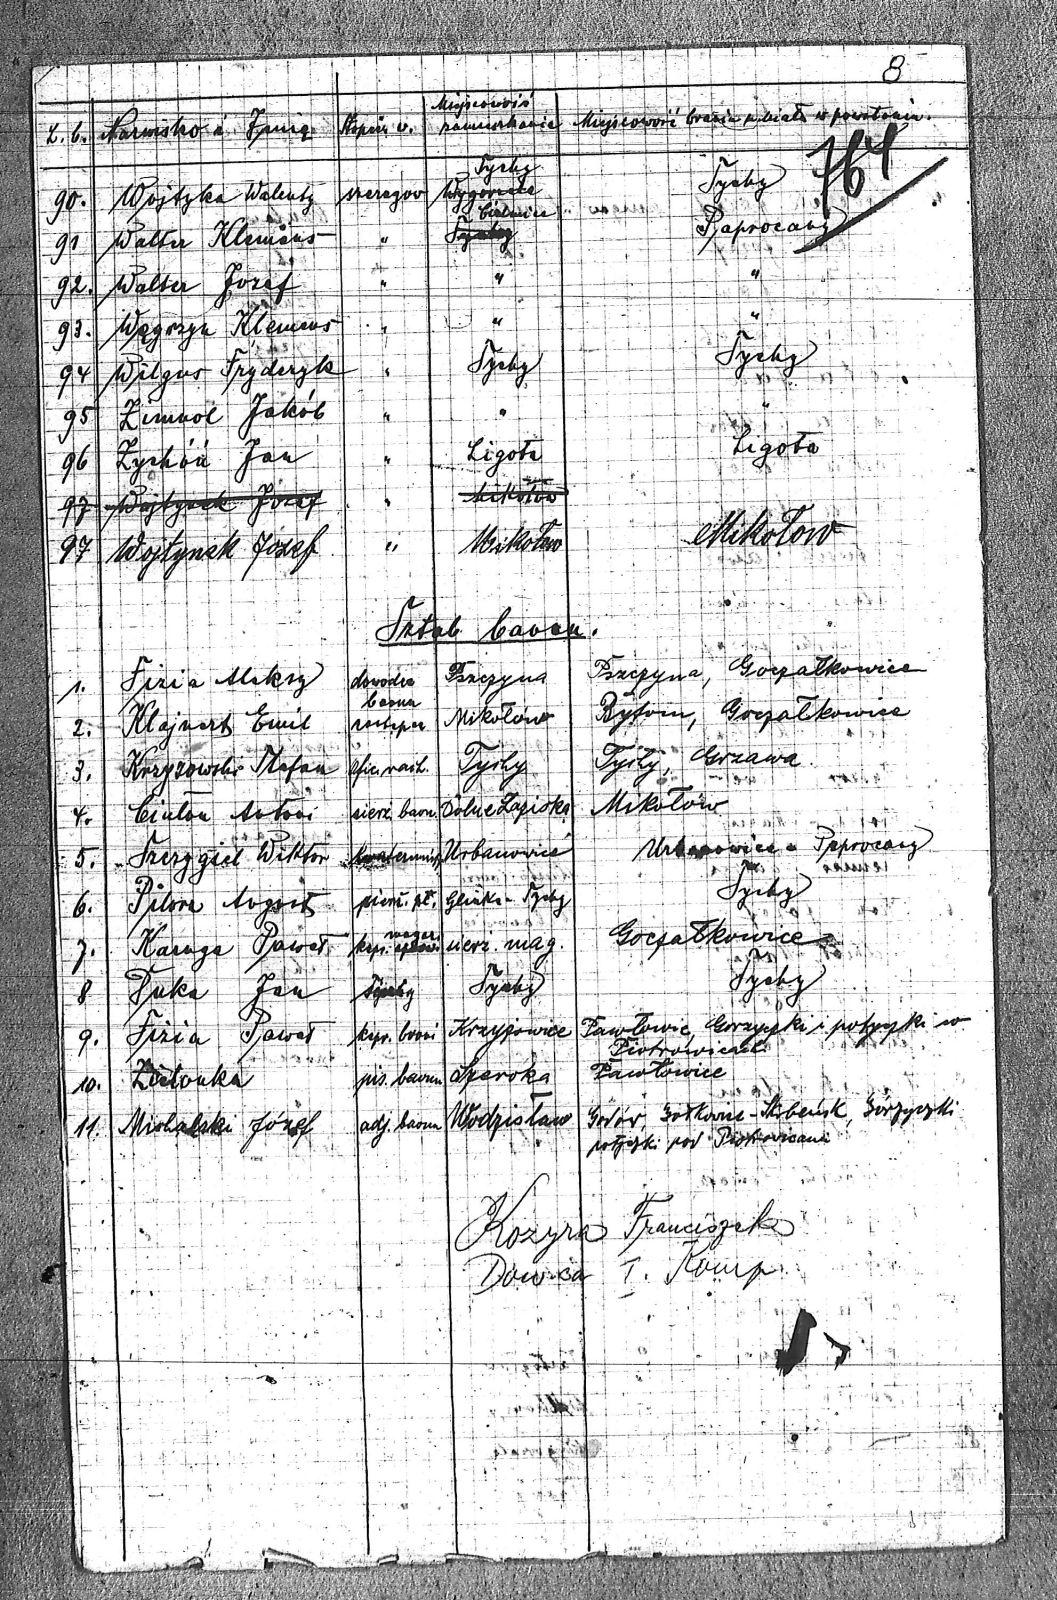 8
L. b. Nazwisko i Imię Stopień w. Miejscowość zamieszkania Miejscowość brania udziału w powstaniu.
764
90. Wojtyka Walenty szeregow Tychy Tychy
91 Walter Klemens " Cielmice Tychy Paprocany
92. Walter Józef " " "
93. Węgrzyn Klemens " " "
94 Wilgus Fryderyk " Tychy Tychy
95 Zimnol Jakób " " "
96 Zychóń Jan " Ligota Ligota
97 Wojtynek Józef " Mikołów
97 Wojtynek Józef " Mikołow Mikołow
Sztab baonu.
1. Fizia Aleksy dowódca baonu Pszczyna Pszczyna, Goczałkowice
2. Klajnert Emil zastępca Mikołów Bytom, Goczałkowice
3. Krzyżowski Stefan ofic. rach. Tychy Tychy, Grzawa
4. Antoni sierż. baonu Dolne Łaziska Mikołów
5. Szczygieł Wiktor Urbanowice Urbanowice Paprocany
6. August Glinka - Tychy Tychy
7. Paweł sierż. mag. Goczałkowice
8 Jan Tychy Tychy Tychy
9. Fizia Paweł kpr. broni Krzyżowice Pawłowice, Gorzyczki i potyczki w
Piotrowicach
10. pis. baonu Szeroka Pawłowice
11. Michalski Józef adj. baonu Wodzisław Godów, Gorzyczki
potyczki pod Piotrowicami
Kozyra Franciszek
Dowca I. Komp.